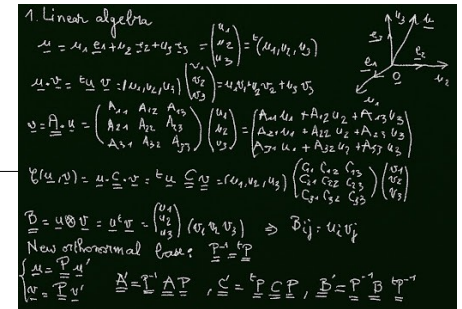 1. Linear algebra
u = u₁ e₁ + u₂ e₂ + u₃ e₃ = (u₁ u₂ u₃) = ᵗ(u₁, u₂, u₃)
u · v = ᵗu v = (u₁, u₂, u₃) (v₁ v₂ v₃) = u₁v₁ + u₂v₂ + u₃v₃
v = A · u = (A₁₁ A₁₂ A₁₃ A₂₁ A₂₂ A₂₃ A₃₁ A₃₂ A₃₃) (u₁ u₂ u₃) = (A₁₁u₁ + A₁₂u₂ + A₁₃u₃ A₂₁u₁ + A₂₂u₂ + A₂₃u₃ A₃₁u₁ + A₃₂u₂ + A₃₃u₃)
C(u, v) = u · C · v = ᵗu C v = (u₁, u₂, u₃) (C₁₁ C₁₂ C₁₃ C₂₁ C₂₂ C₂₃ C₃₁ C₃₂ C₃₃) (v₁ v₂ v₃)
B = u ⊗ v = u ᵗv = (u₁ u₂ u₃) (v₁ v₂ v₃) ⇒ Bᵢⱼ = uᵢvⱼ
New orthonormal base: P⁻¹ = ᵗP
{ u = P u'
v = P v' A' = P⁻¹ A P , C' = ᵗP C P , B' = P⁻¹ B ᵗP⁻¹
u₃ u
e₃
e₁ e₂
O u₂
u₁